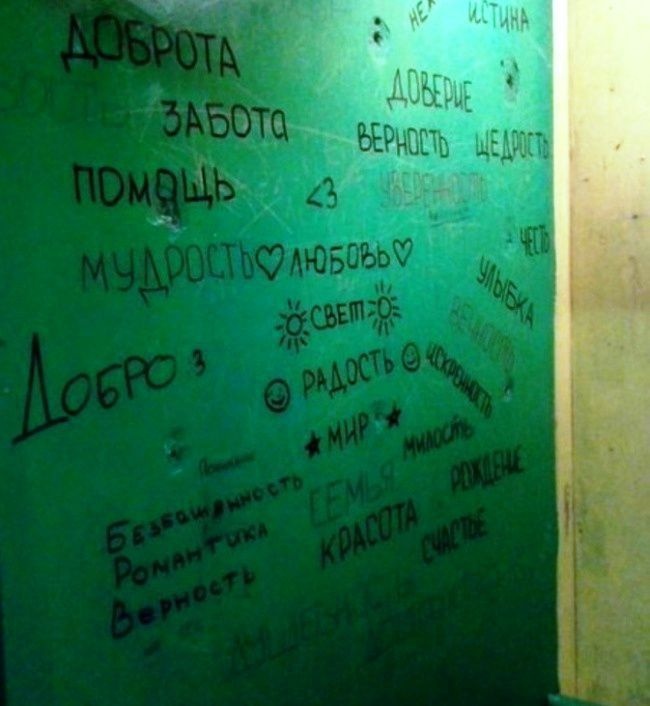 ИСТИНА
ДОБРОТА
ДОВЕРИЕ
ЗАБОТА
ВЕРНОСТЬ ЩЕДРОСТЬ
ПОМОЩЬ <3 УВЕРЕННОСТЬ
ЧЕСТЬ
МУДРОСТЬ♡ЛЮБОВЬ♡
УЛЫБКА
СВЕТ
ДОБРО З
☺ РАДОСТЬ ☺ ИСКРЕННОСТЬ
★МИР★
МИЛОСТЬ
РОЖДЕНИЕ
СЕМЬЯ
БЕЗБАШЕННОСТЬ
КРАСОТА
СЧАСТЬЕ
РОМАНТИКА
ВЕРНОСТЬ